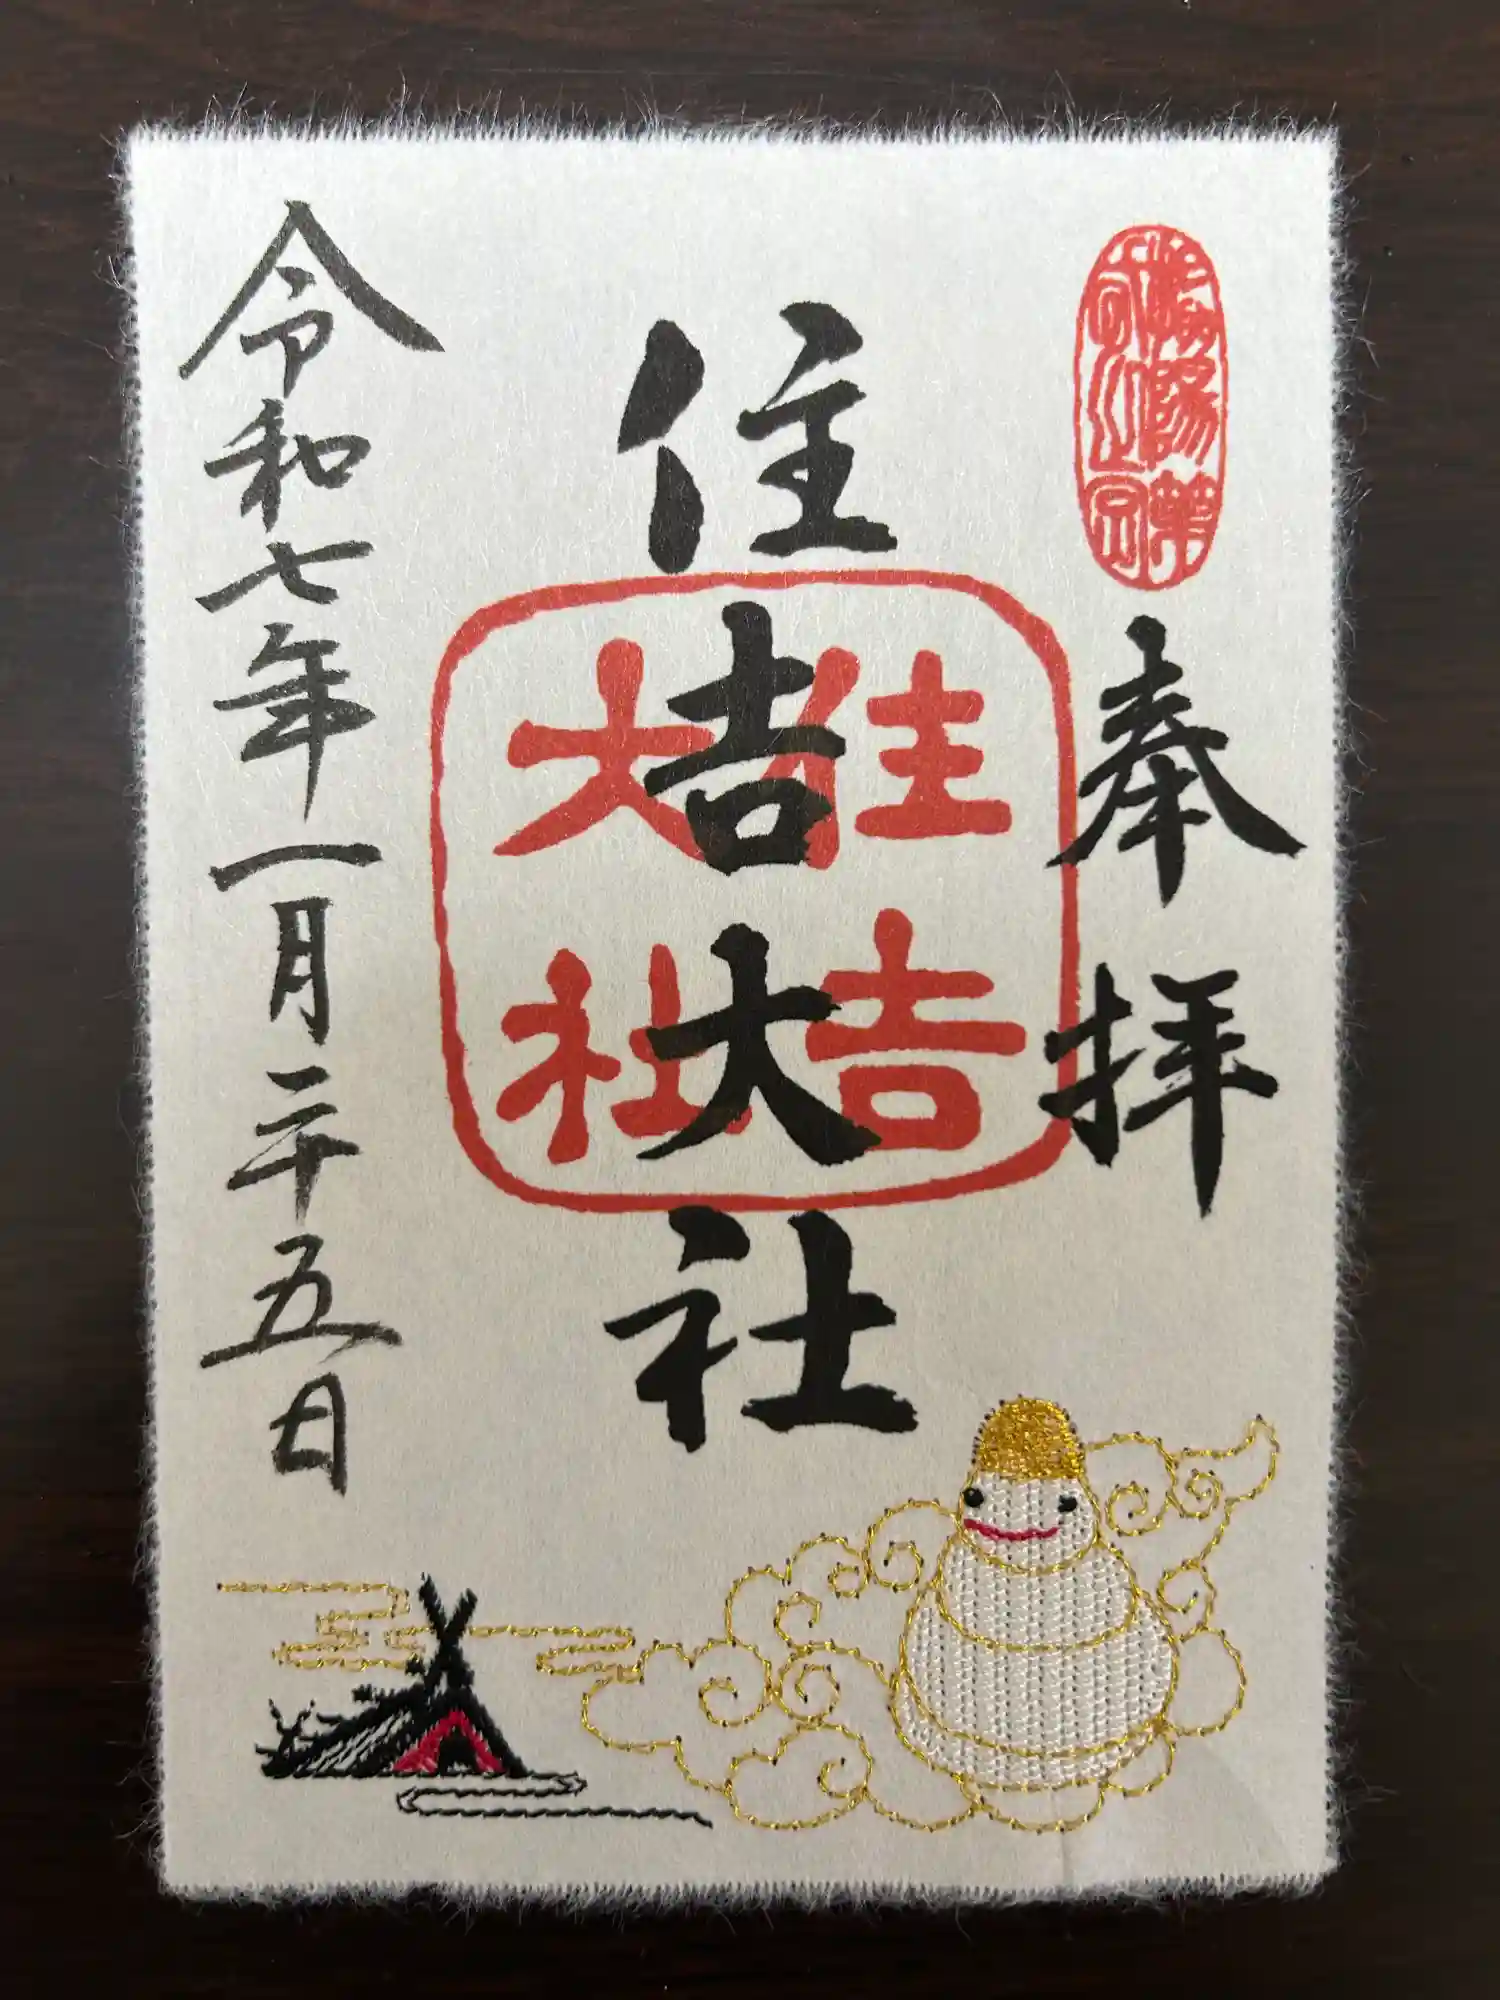 奉拝
住吉大社
住吉大社
令和七年一月二十五日